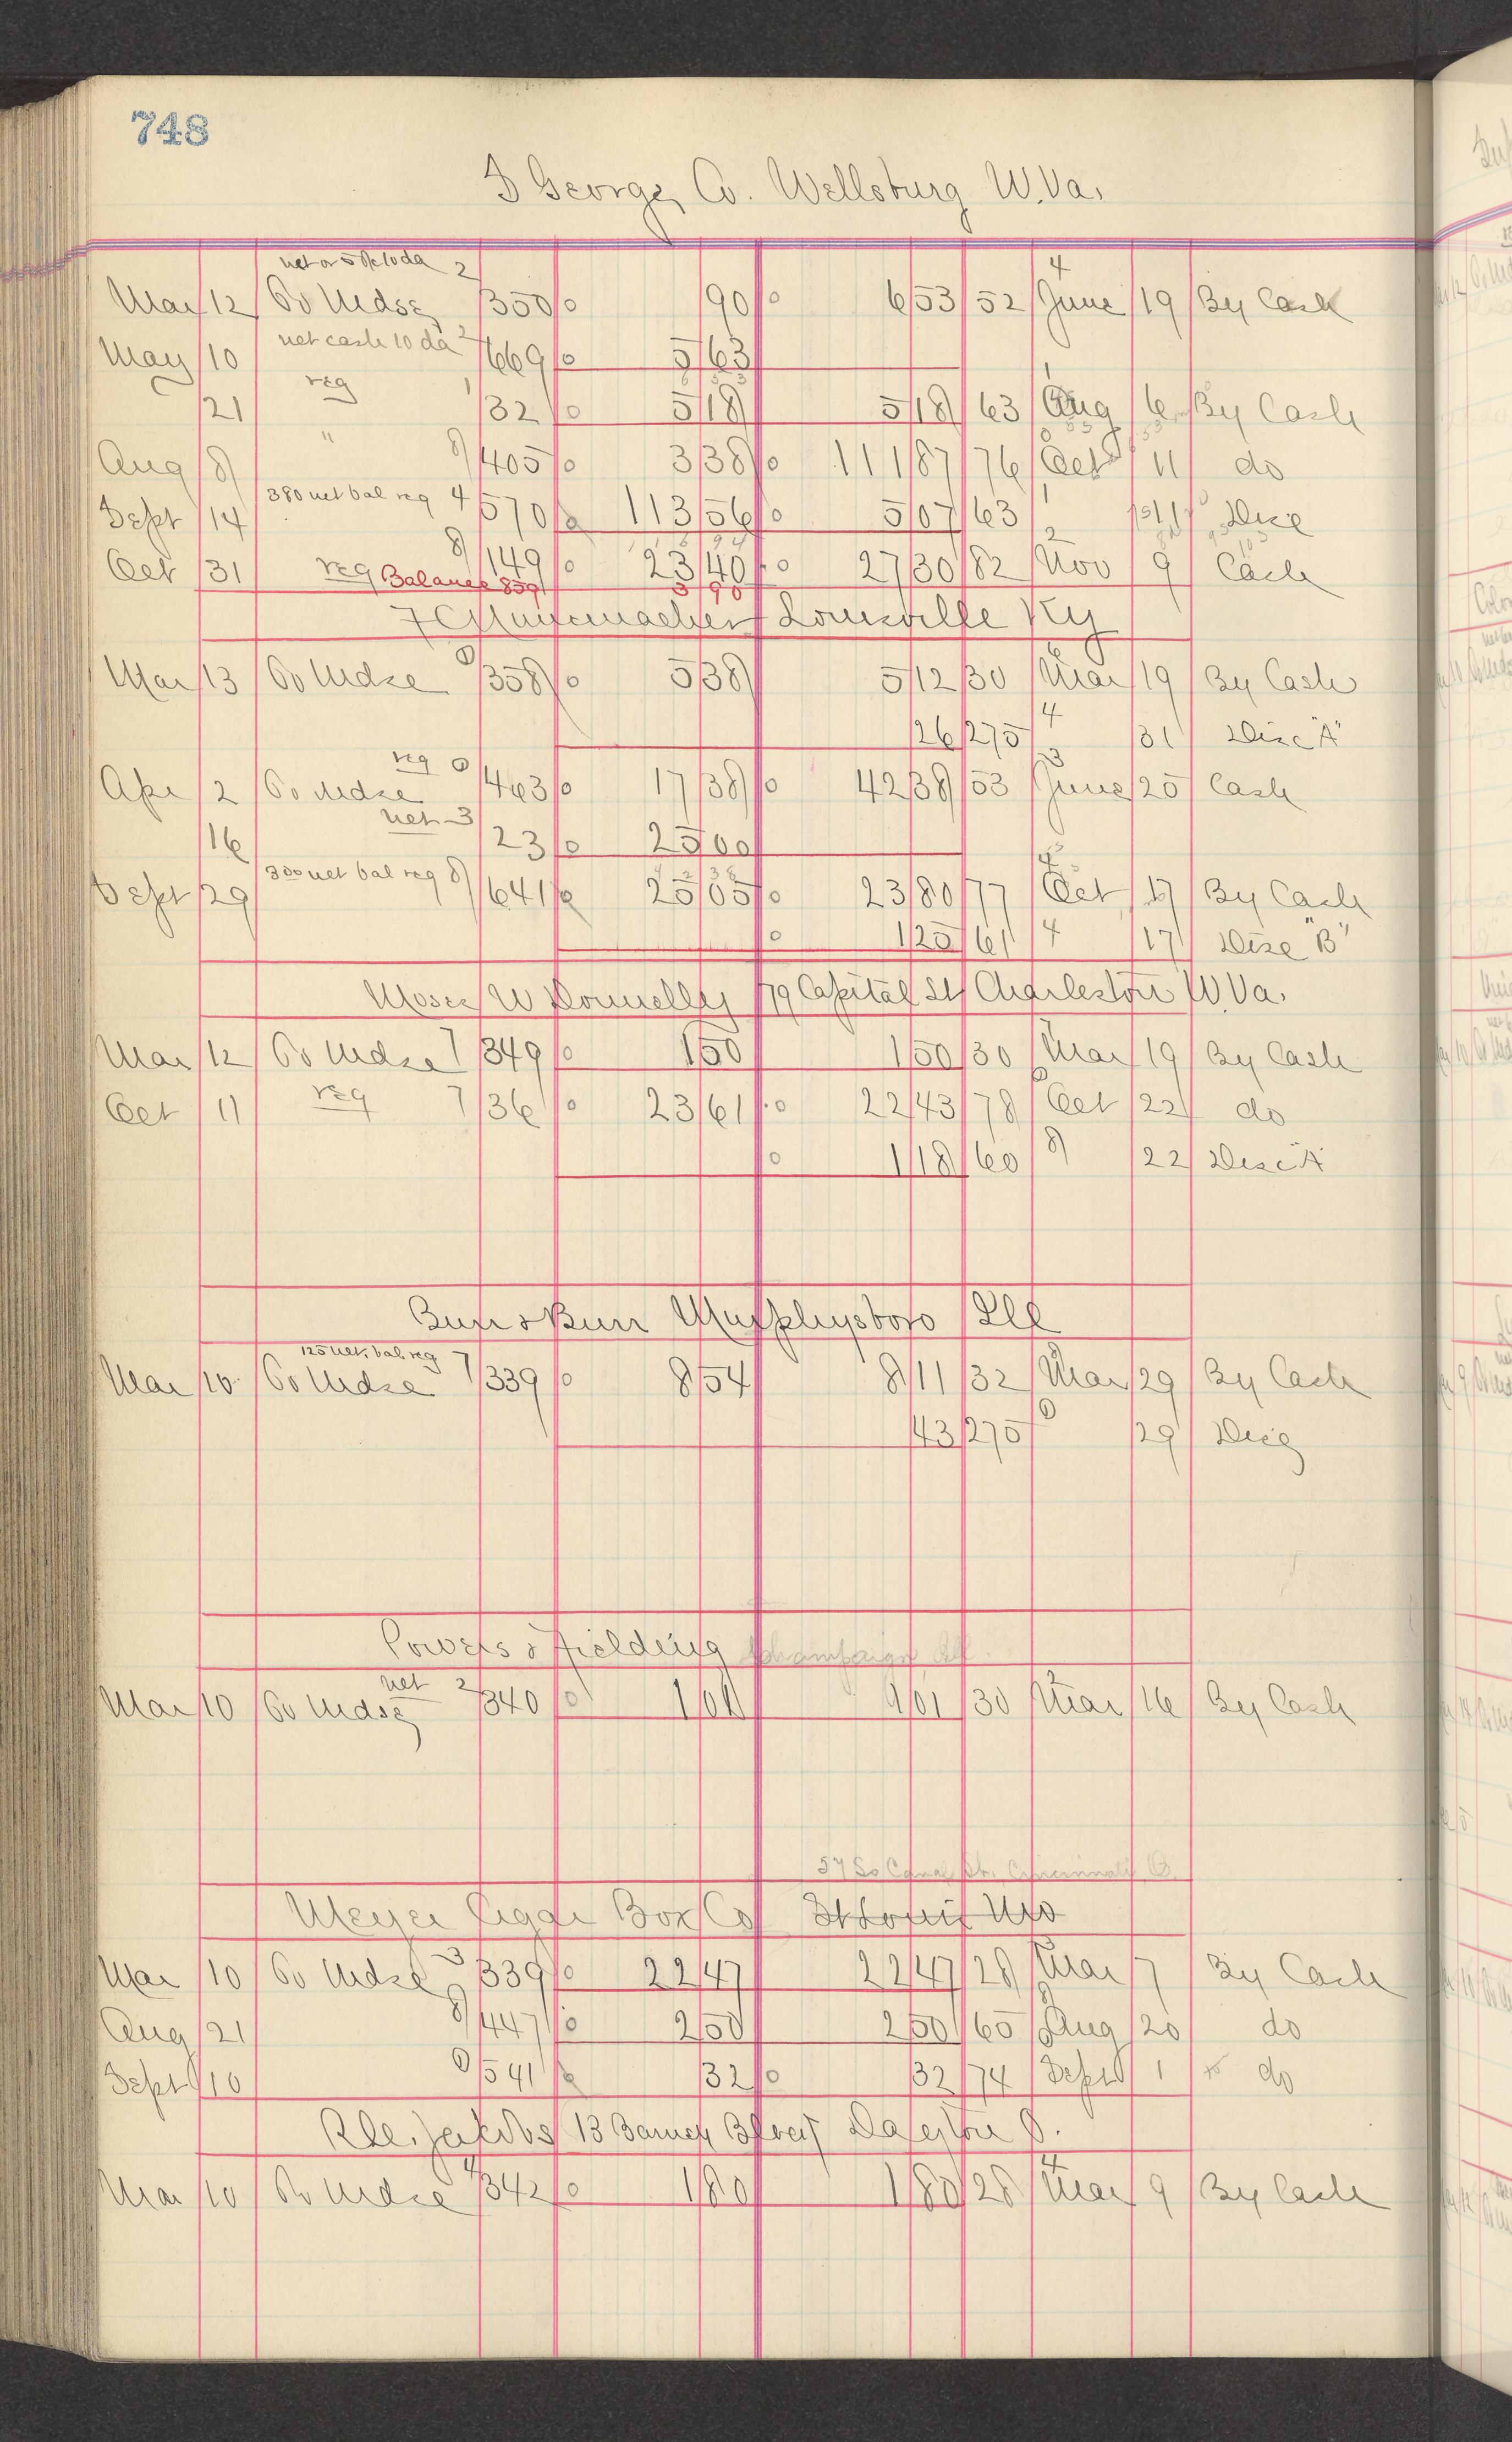 748
George Co. Wellsburg W.Va.
Mar 12 To Mdse 350 90 6 53 52 June 19 By Cash
May 10 net cash 10 da 669 5 63
21 reg 32 5 18 5 18 63 Aug 6 By Cash
Aug 8 " 405 3 38 111 87 76 Oct 11 do
Sept 14 380 net bal reg 4 570 113 56 5 07 63 Disc
Oct 31 reg 8 149 23 40 27 30 82 Nov 9 Cash
Balance 859 5 90
Louisville Ky
Mar 13 To Mdse 358 5 38 5 12 30 Mar 19 By Cash
26 275 4 31 Disc "A"
reg
Apr 2 To Mdse 463 17 38 42 38 53 June 25 Cash
16 net 3 23 25 00
Sept 29 300 net bal reg 8 641 25 05 23 80 77 Oct 17 By Cash
1 25 61 4 17 Disc "B"
Moses W Donnelly 79 Capital St Charleston W Va.
Mar 12 To Mdse 7 349 1 50 1 50 30 Mar 19 By Cash
Oct 11 reg 7 36 23 61 22 43 78 Oct 22 do
1 18 60 8 22 Disc A
Murphysboro Ill
125 net, bal. reg
Mar 10 To Mdse 7 339 8 54 8 11 32 Mar 29 By Cash
43 275 29 Disc
Powers & Fielding Champaign Ill.
net 2
Mar 10 To Mdse 340 1 01 1 01 30 Mar 16 By Cash
57 So Canal St. Cincinnati O.
Meyer Cigar Box Co St Louis Mo
Mar 10 To Mdse 3 339 22 47 22 47 28 Mar 7 By Cash
Aug 21 8 447 2 50 2 50 65 Aug 20 do
Sept 10 541 32 32 74 Sept 1 do
13 Dayton O.
Mar 10 To Mdse 342 1 80 1 80 28 Mar 9 By Cash